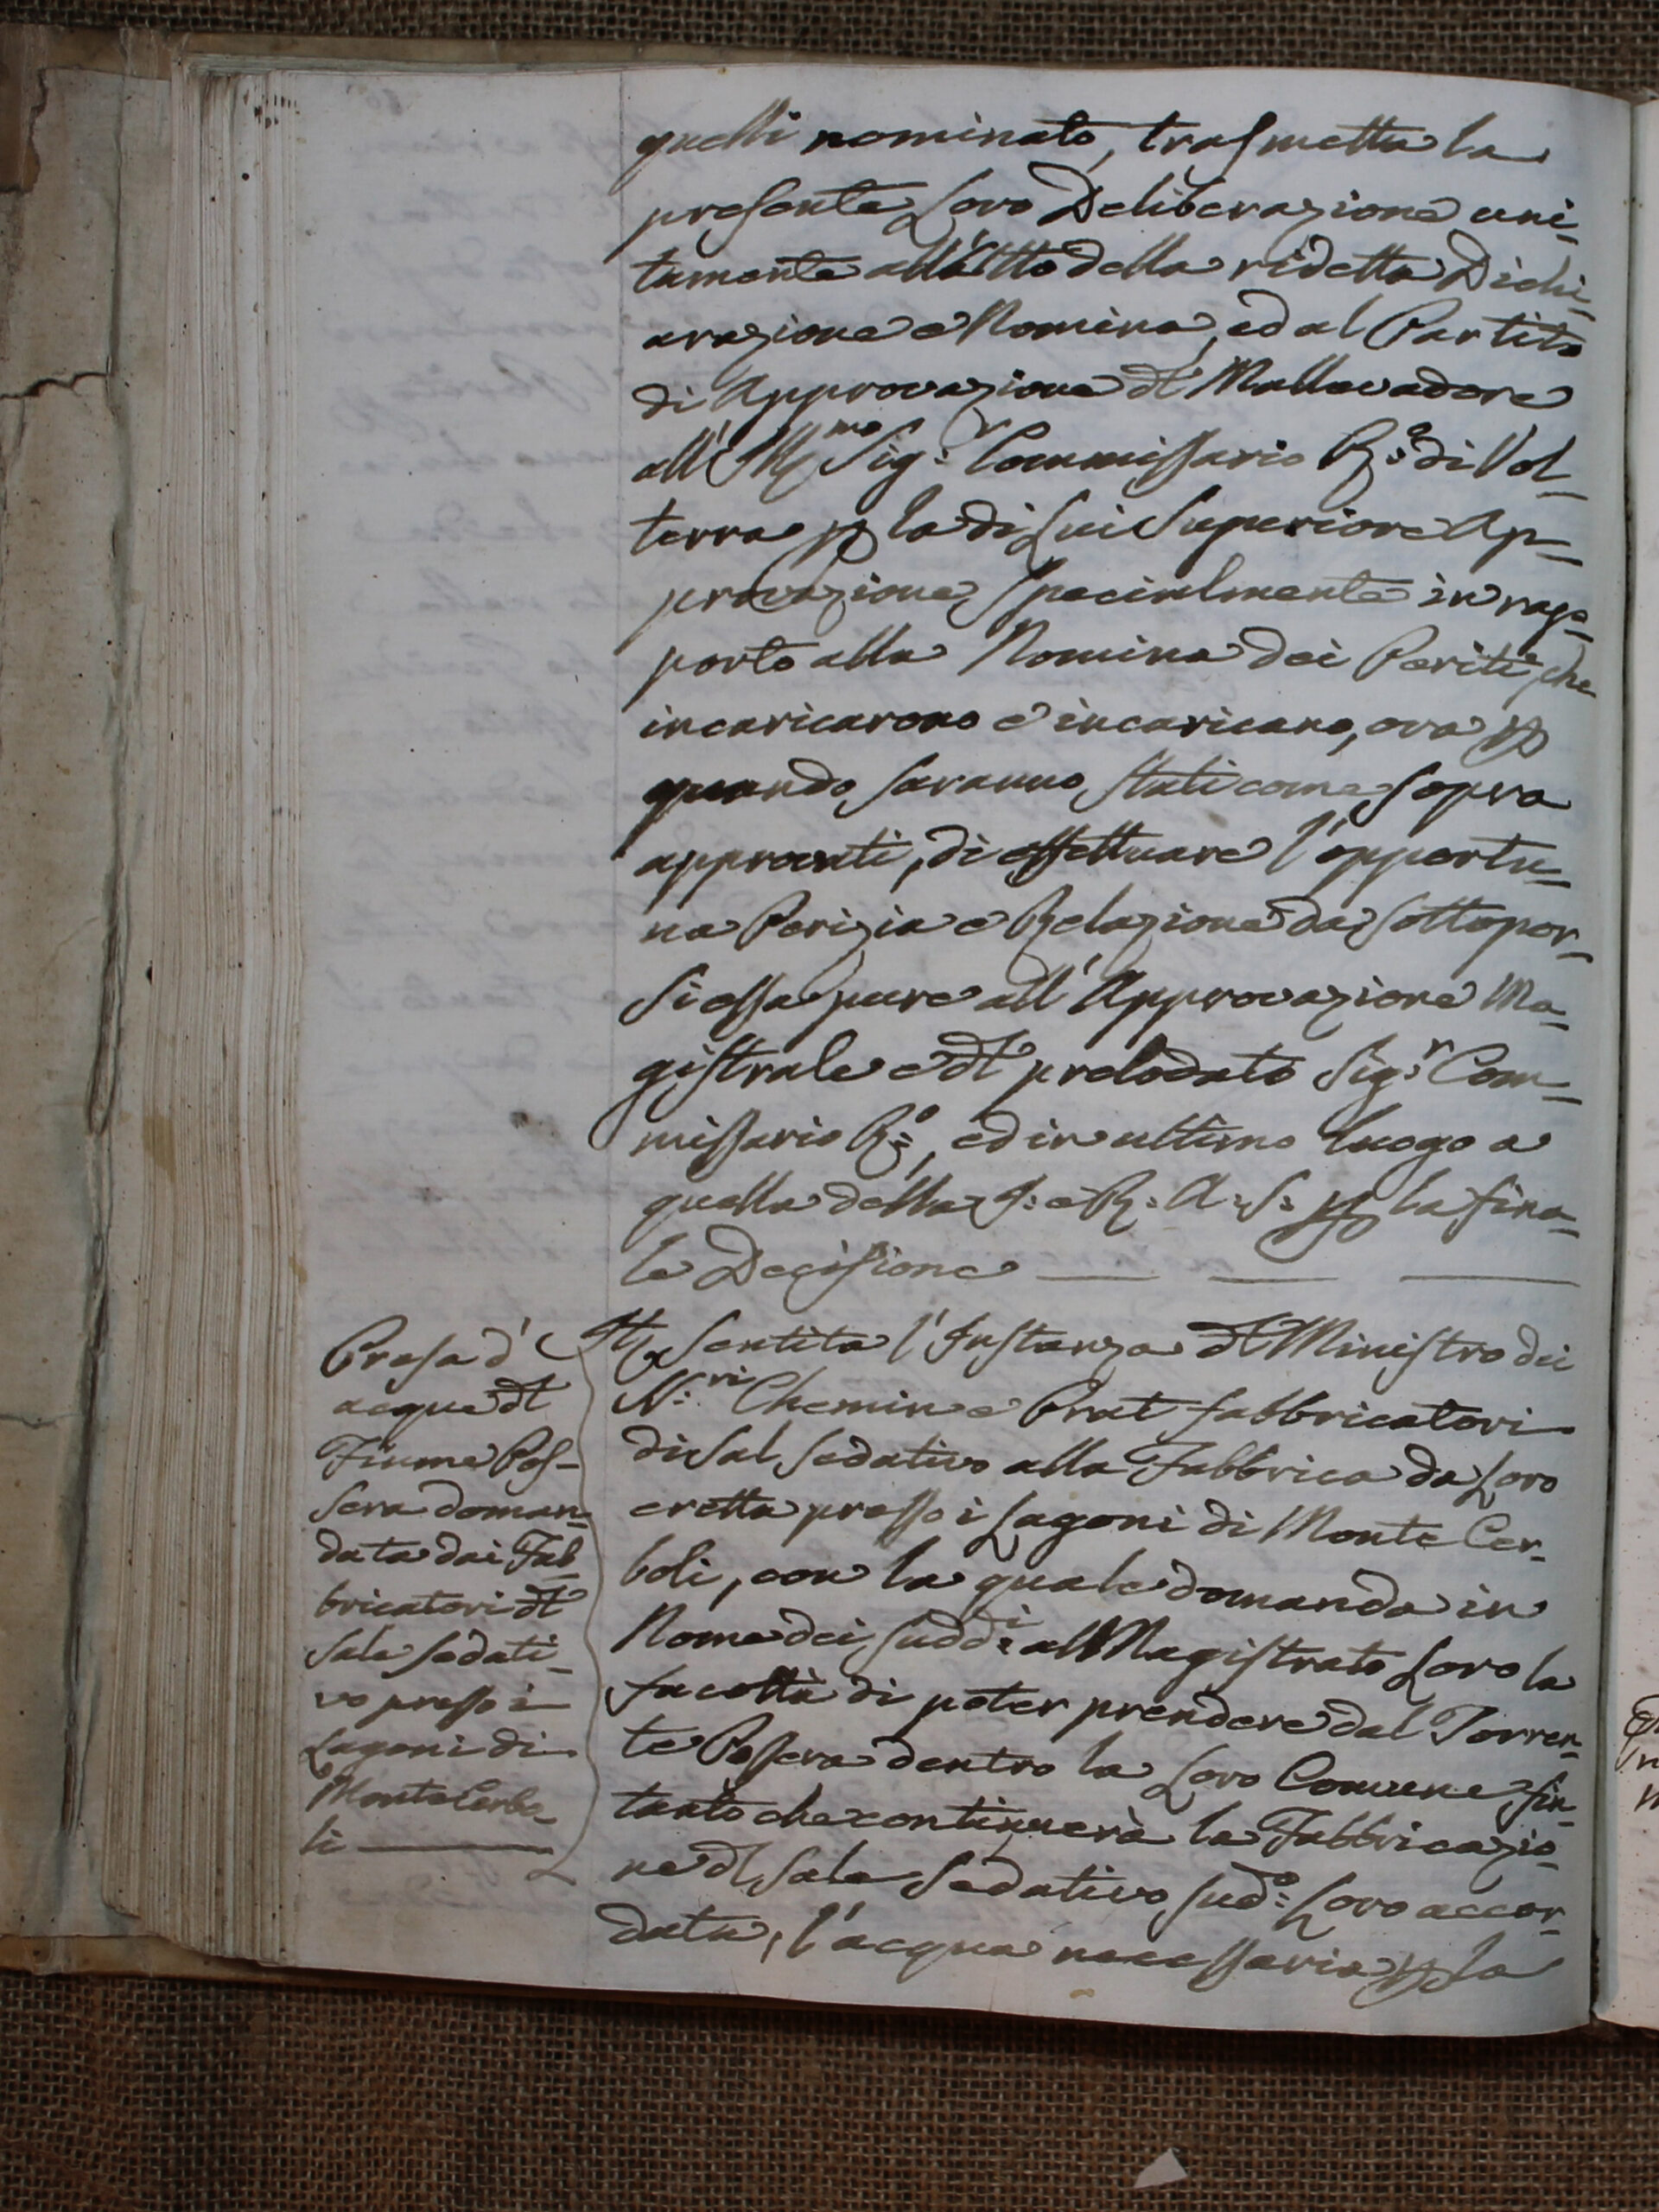 quelli nominato, trasmetta la
presente Loro Deliberazione uni-
tamente all'Atto della ridetta Dichi-
arazione e Nomina, ed al Partito
di Approvazione dl Mallevadore
all' Ill.mo Sig.r Commissario R.o di Vol-
terra p la di Lui Superiore Ap-
provazione, specialmente in rap-
porto alla Nomina dei Periti, che
incaricarono e incaricano, ora p
quando saranno stati come sopra
approvati, di effettuare l'opportu-
na Perizia e Relazione da sottopor-
si essa pure all'Approvazione Ma-
gistrale e dl prelodato Sig.r Com-
missario R.o, ed in ultimo luogo a
quella della I: e R: A: S: p la fina-
le Decisione
Presa d'
acque dl
Fiume Pos-
sera doman-
data dai Fab-
bricatori dl
Sale sedati-
vo presso i
Lagoni di
Monte Cerbo-
li
Itt. Sentita l'Instanza dl Ministro dei
N.ri Chemin e Prat fabbricatori
di Sal sedativo alla Fabbrica da Loro
eretta presso i Lagoni di Monte Cer-
boli, con la quale domanda in
Nome dei sudd.i al Magistrato Loro la
facoltà di poter prendere dal Torren-
te Possera dentro la Loro Comune, fin-
tanto che continuerà la Fabbricazio-
ne dl Sale Sedativo sud.o Loro accor-
data, l'acqua necessaria p la